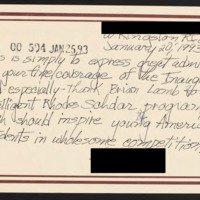 W. Kingston R.I.
CO 594 JAN 25,93
January 20, 1993
s is simply to express great admi
your fine coverage of the Inaugu
d especially thank Brian Lamb for
elligent Rhodes Scholar program
h should inspire young Americ
dents in wholesome competition